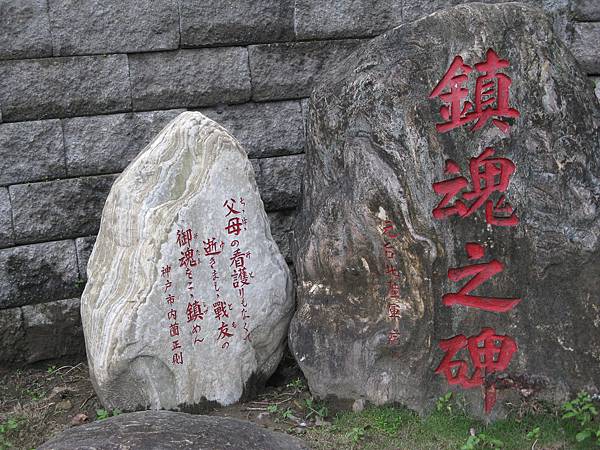 鎮魂之碑
父母の看護りもなく
逝きまし戰友の
御魂をこゝに鎮めん
神戸市 内薗正則